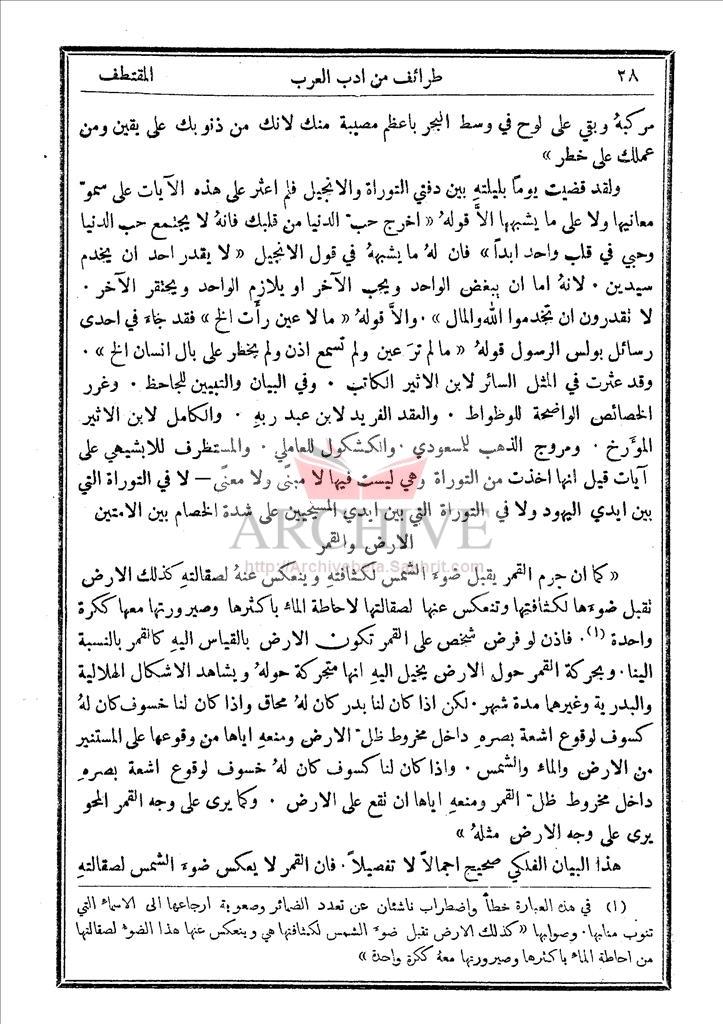 ٢٨ طرائف من ادب العرب المقتطف
مركبهُ وبقي على لوح في وسط البحر باعظم مصيبة منك لانك من ذنوبك على يقين ومن
عملك على خطر »
ولقد قضيت يوماً بليلتهِ بين دفتي التوراة والانجيل فلم اعثر على هذه الآيات على سموّ
معانيها ولا على ما يشبهها الاَّ قولهُ « اخرج حبّ الدنيا من قلبك فانهُ لا يجتمع حب الدنيا
وحبي في قلب واحد ابداً » فان لهُ ما يشبههُ في قول الانجيل « لا يقدر احد ان يخدم
سيدين ٠ لانهُ اما ان يبغض الواحد ويحب الآخر او يلازم الواحد ويحتقر الآخر ٠
لا نقدرون ان تخدموا الله والمال » ٠ والاَّ قولهُ « ما لا عين رأت الخ » فقد جاءَ في احدى
رسائل بولس الرسول قولهُ « ما لم ترَ عين ولم تسمع اذن ولم يخطر على بال انسان الخ » ٠
وقد عثرت في المثل السائر لابن الاثير الكاتب ٠ وفي البيان والتبيين للجاحظ ٠ وغرر
الخصائص الواضحة للوطواط ٠ والعقد الفريد لابن عبد ربهِ ٠ والكامل لابن الاثير
المؤَرخ ٠ ومروج الذهب للمسعودي ٠ والكشكول للعاملي ٠ والمستظرف للابشيهي على
آيات قيل انها اخذت من التوراة وهي ليست فيها لا مبنًى ولا معنًى — لا في التوراة التي
بين ايدي اليهود ولا في التوراة التي بين ايدي المسيحيين على شدة الخصام بين الامتين
ARCHIVE
الارض والقمر
http://Archivebeta.Sakhrit.com
« كما ان جرم القمر يقبل ضوءَ الشمس لكثافتهِ وينعكس عنهُ لصقالتهِ كذلك الارض
نقبل ضوءَها لكثافتها وتنعكس عنها لصقالتها لاحاطة الماء باكثرها وصيرورتها معها ككرة
واحدة (١) ٠ فاذن لو فرض شخص على القمر تكون الارض بالقياس اليهِ كالقمر بالنسبة
الينا ٠ وبحركة القمر حول الارض يخيل اليهِ انها متحركة حولهُ ويشاهد الاشكال الهلالية
والبدرية وغيرهما مدة شهر ٠ لكن اذا كان لنا بدر كان لهُ محاق واذا كان لنا خسوف كان لهُ
كسوف لوقوع اشعة بصرهِ داخل مخروط ظلّ الارض ومنعهِ اياها من وقوعها على المستنير
من الارض والماء والشمس ٠ واذا كان لنا كسوف كان لهُ خسوف لوقوع اشعة بصرهِ
داخل مخروط ظلّ القمر ومنعهِ اياها ان تقع على الارض ٠ وكما يرى على وجه القمر المحو
يرى على وجه الارض مثلهُ »
هذا البيان الفلكي صحيح اجمالاً لا تفصيلاً ٠ فان القمر لا يعكس ضوءَ الشمس لصقالتهِ
(١) في هذه العبارة خطأ واضطراب ناشئان عن تعدد الضمائر وصعوبة ارجاعها الى الاسماء التي
تنوب منابها ٠ وصوابها « كذلك الارض نقبل ضوءَ الشمس لكثافتها هي وينعكس عنها هذا الضوءُ لصقالتها
من احاطة الماءِ باكثرها وصيرورتها معهُ ككرة واحدة »